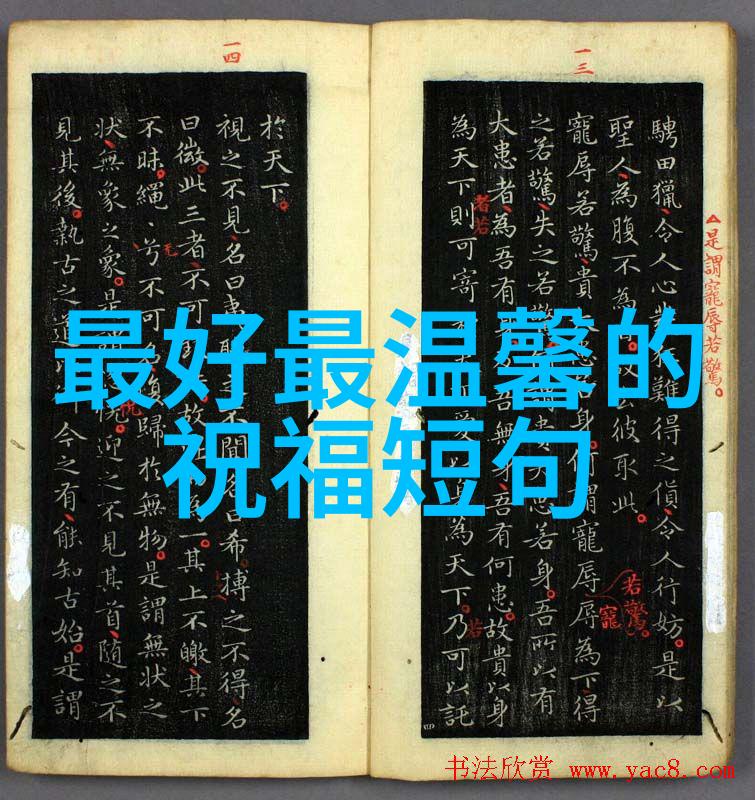 最好最温馨的
祝福短句
一三
是謂寵辱若驚。
騁田獵令人心 難得之貨令人行妨是以
聖人為腹不為 彼取此
寵辱若驚貴 身何謂寵辱辱為下得
之若驚失之若 貴大患若身吾所以有
大患者為吾有 吾無身吾有何患故貴以身
為天下則可寄 愛以 為天下乃可以託
若驚
寵
者若
若
一四
於天下
視之不見名曰 不聞名曰希搏之不得名
曰微此三者不可 故 一其上不皦其下
不昧繩〻兮不可名復歸於無物是謂無狀之
狀無象之象是謂 迎之不見其首隨之不
見其後執古之道 今之有能知古始是謂
书法欣赏 www.yac8.com